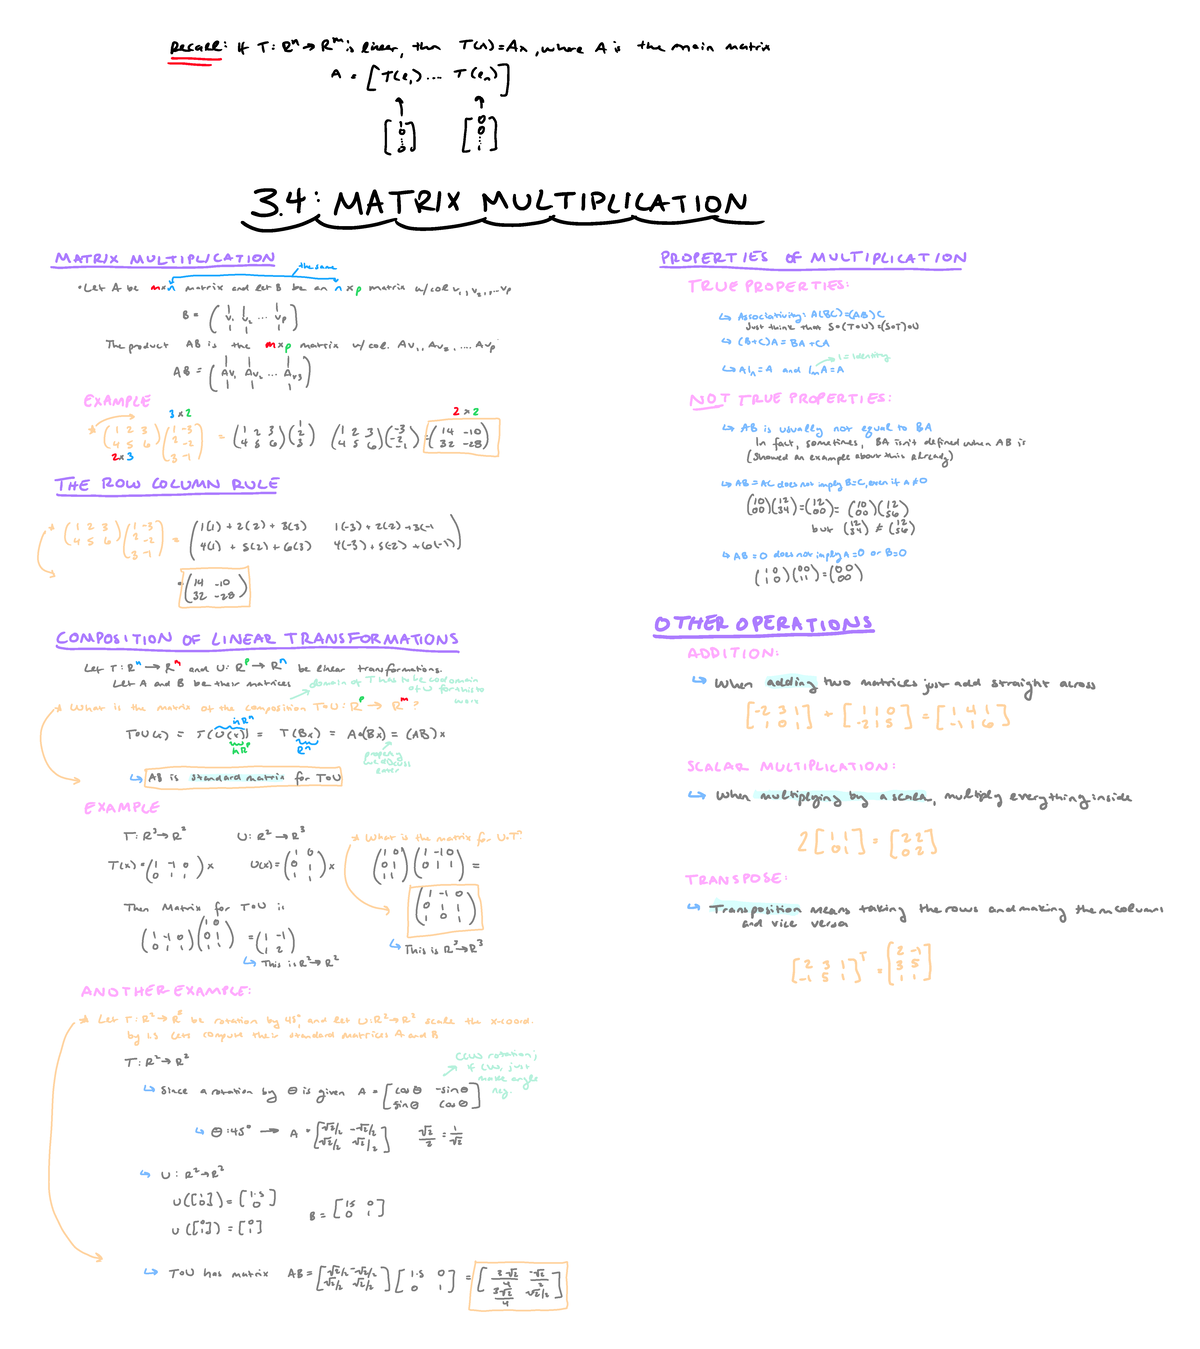 Recall: If T: Rⁿ → Rᵐ is linear, then T(x) = Ax, where A is the main matrix
A = [T(e₁) ... T(eₙ)]
[1 0 ⋮ 0] [0 0 ⋮ 1]
3.4: MATRIX MULTIPLICATION
MATRIX MULTIPLICATION
the same
• Let A be m×n matrix and let B be an n×p matrix w/ col v₁, v₂, ... vp
B = ( v₁ v₂ ... vp )
The product AB is the m×p matrix w/ col. Av₁, Av₂, .... Avp
AB = ( Av₁ Av₂ ... Av₃ )
EXAMPLE
3×2 2×2
* (1 2 3 / 4 5 6)(1 -3 / 2 -2 / 3 -1) = (1 2 3 / 4 5 6)(1 / 2 / 3) (1 2 3 / 4 5 6)(-3 / -2 / -1) = (14 -10 / 32 -28)
2×3
THE ROW COLUMN RULE
* (1 2 3 / 4 5 6)(1 -3 / 2 -2 / 3 -1) = (1(1) + 2(2) + 3(3) 1(-3) + 2(2) + 3(-1 / 4(1) + 5(2) + 6(3) 4(-3) + 5(-2) + 6(-1))
= (14 -10 / 32 -28)
COMPOSITION OF LINEAR TRANSFORMATIONS
Let T: Rⁿ → Rᵐ and U: Rᵖ → Rⁿ be linear transformations.
Let A and B be their matrices
domain of T has to be codomain
of U for this to
work
* What is the matrix of the composition T∘U: Rᵖ → Rᵐ?
in Rⁿ
T∘U(x) = T(U(x)) = T(Bx) = A(Bx) = (AB)x
in Rᵖ Rⁿ
property
we discuss
later
↳ AB is standard matrix for T∘U
EXAMPLE
T: R³ → R² U: R² → R³
T(x) = (1 -1 0 / 0 1 1) x U(x) = (1 0 / 0 1 / 1 1) x
Then Matrix for T∘U is
(1 -1 0 / 0 1 1)(1 0 / 0 1 / 1 1) = (1 -1 / 1 2)
↳ This is R² → R²
* What is the matrix for U∘T?
(1 0 / 0 1 / 1 1)(1 -1 0 / 0 1 1) =
(1 -1 0 / 0 1 1 / 1 0 1)
↳ This is R³ → R³
ANOTHER EXAMPLE:
* Let T: R² → R² be rotation by 45°, and let U: R² → R² scale the x-coord.
by 1.5 Lets compute their standard matrices A and B
T: R² → R²
CCW rotation;
if CW, just
make angle
neg.
↳ Since a rotation by θ is given A = [cos θ -sin θ / sin θ cos θ]
↳ θ: 45° → A = [√2/2 -√2/2 / √2/2 √2/2] √2/2 = 1/√2
↳ U: R² → R²
U([1 / 0]) = [1.5 / 0]
U([0 / 1]) = [0 / 1]
B = [1.5 0 / 0 1]
↳ T∘U has matrix AB = [√2/2 -√2/2 / √2/2 √2/2][1.5 0 / 0 1] = [3√2/4 -√2/2 / 3√2/4 √2/2]
PROPERTIES OF MULTIPLICATION
TRUE PROPERTIES:
↳ Associativity: A(BC) = (AB)C
Just think that S∘(T∘U) = (S∘T)∘U
↳ (B+C)A = BA + CA
I = Identity
↳ AIₙ = A and IₘA = A
NOT TRUE PROPERTIES:
↳ AB is usually not equal to BA
In fact, sometimes, BA isn't defined when AB is
(showed an example about this already)
↳ AB = AC does not imply B=C, even if A ≠ 0
(10 / 00)(12 / 34) = (12 / 00) = (10 / 00)(12 / 56)
but (12 / 34) ≠ (12 / 56)
↳ AB = 0 does not imply A = 0 or B = 0
(1 0 / 1 0)(00 / 11) = (00 / 00)
OTHER OPERATIONS
ADDITION:
↳ When adding two matrices just add straight across
[-2 3 1 / 1 0 1] + [1 1 0 / -2 1 5] = [-1 4 1 / -1 1 6]
SCALAR MULTIPLICATION:
↳ When multiplying by a scala, multiply everything inside
2[1 1 / 0 1] = [2 2 / 0 2]
TRANSPOSE:
↳ Transposition means taking the rows and making them columns
and vice versa
[2 3 1 / -1 5 1]ᵀ = [2 -1 / 3 5 / 1 1]